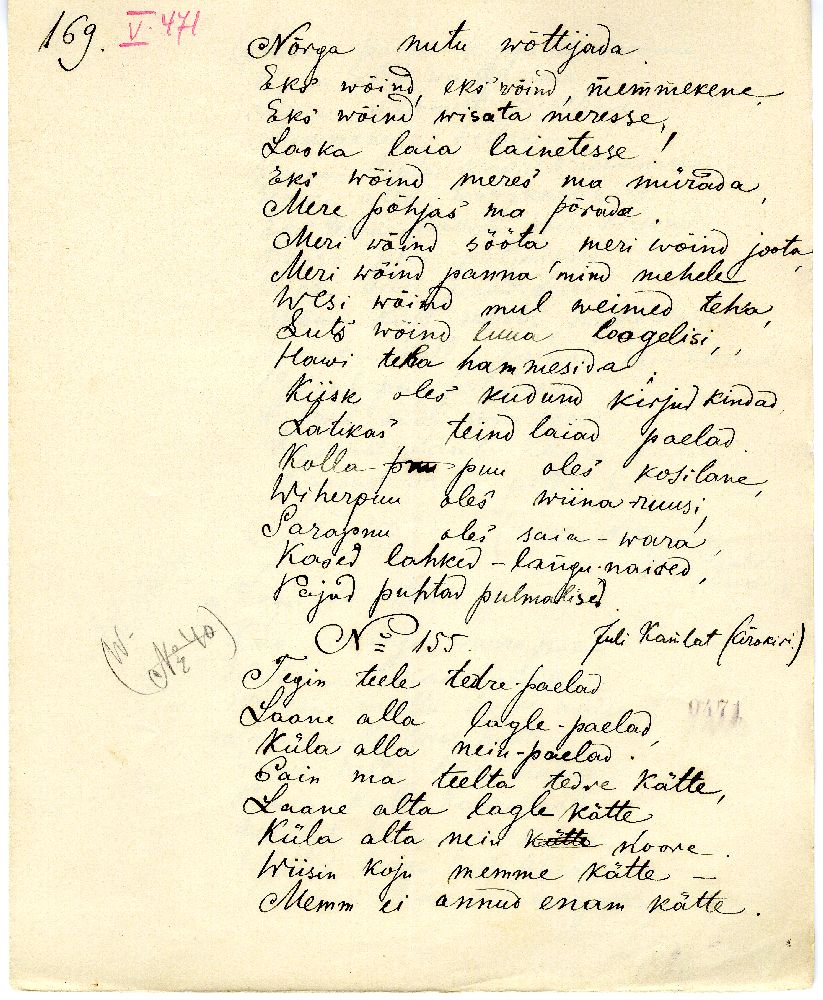 169. V. 471
Nõrga nutu wõttijada
Eks wõind, eks wõind, memmekene,
Eks wõind wisata meresse,
Laska laia lainetesse!
Eks wõind meres ma mürada,
Mere põhjas ma põrada.
Meri wõind sööta meri wõind joota,
Meri wõind panna mind mehele
Wesi wõind mul weimed teha,
Luts wõind luua loogelisi,
Hawi teha hammesida.
Kiisk oles kudund kirjud kindad,
Latikas teind laiad paelad
Kolla-puu oles kosilane,
Wiherpuu oles wiina-ruusi,
Sarapuu oles saia-wara,
Kased lahked - langu-naised,
Pajud puhtad pulmalised.
No 155. Juli Kambat (Ärakiri)
(W. No 40)
Tegin teele tedre-paelad
Laane alla lagle-paelad,
Küla alla nein-paelad.
Sain ma teelta tedre kätte,
Laane alta lagle kätte
Küla alta nein kätte Noore.
Wiisin koju memme kätte —
Memm ei annud enam kätte.
0471